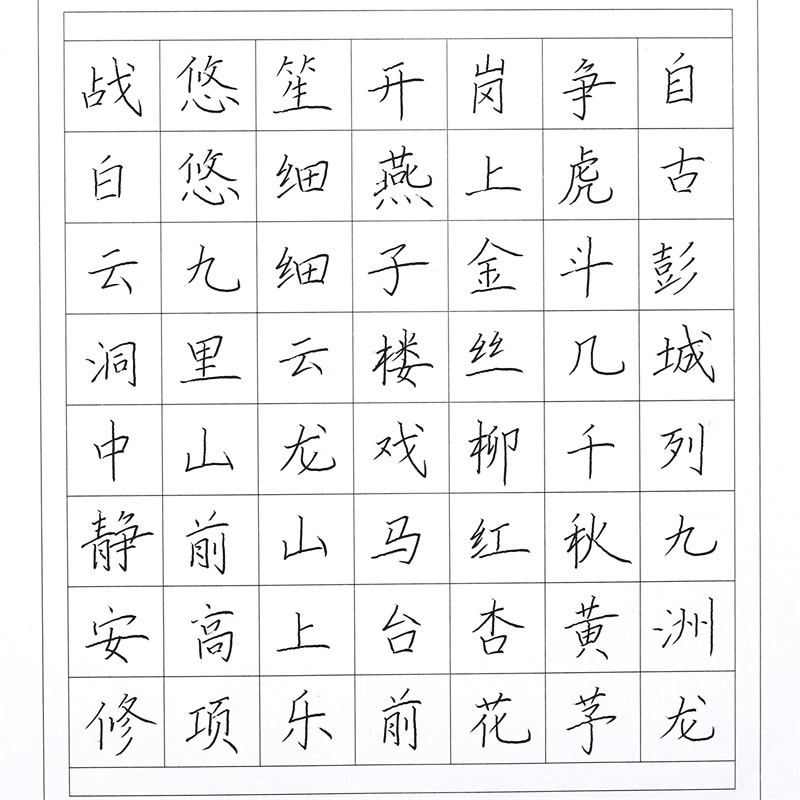 自古彭城列九洲龙
争虎斗几千秋黄茅
岗上金丝柳红杏花
开燕子楼戏马台前
笙细细云龙山上乐
悠悠九里山前高项
战白云洞中静安修